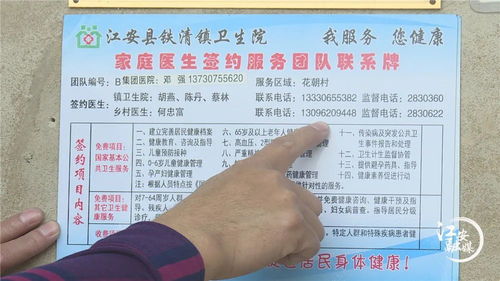 江安县铁清镇卫生院 我服务 您健康
家庭医生签约服务团队联系牌
团队编号：B集团医院：邓 强13730755620 服务区域：花朝村
签约医生：
镇卫生院：胡燕、陈丹、蔡林 联系电话：13330655382 监督电话：2830360
乡村医生：何忠富 联系电话：13096209448 监督电话：2830622
签约项目内容
免费项目：
国家基本公共卫生服务
一、建立完善居民健康档案
二、健康教育、咨询及指导
三、儿童预防接种
四、0-6岁儿童健康管理
五、孕产妇健康管理
注：根据人员特点按
六、65岁及以上老年人
七、高血压、2型
八、严重精
管理
药健康管理
针对性的服务。
十一、传染病及突发公共卫生事件报告和处理
十二、卫生计生监督协管
十三、提供避孕药具、指导
十四、健康素养促进行动
免费项目：
其它卫生健康服务
对7-64周岁人群
导、残疾人
诊疗、
免费健康咨询、健康干预及指
妇女病普查、指导居民分级
收费
特定人群和特殊疾病患者健
居民身体健康！
江安融媒